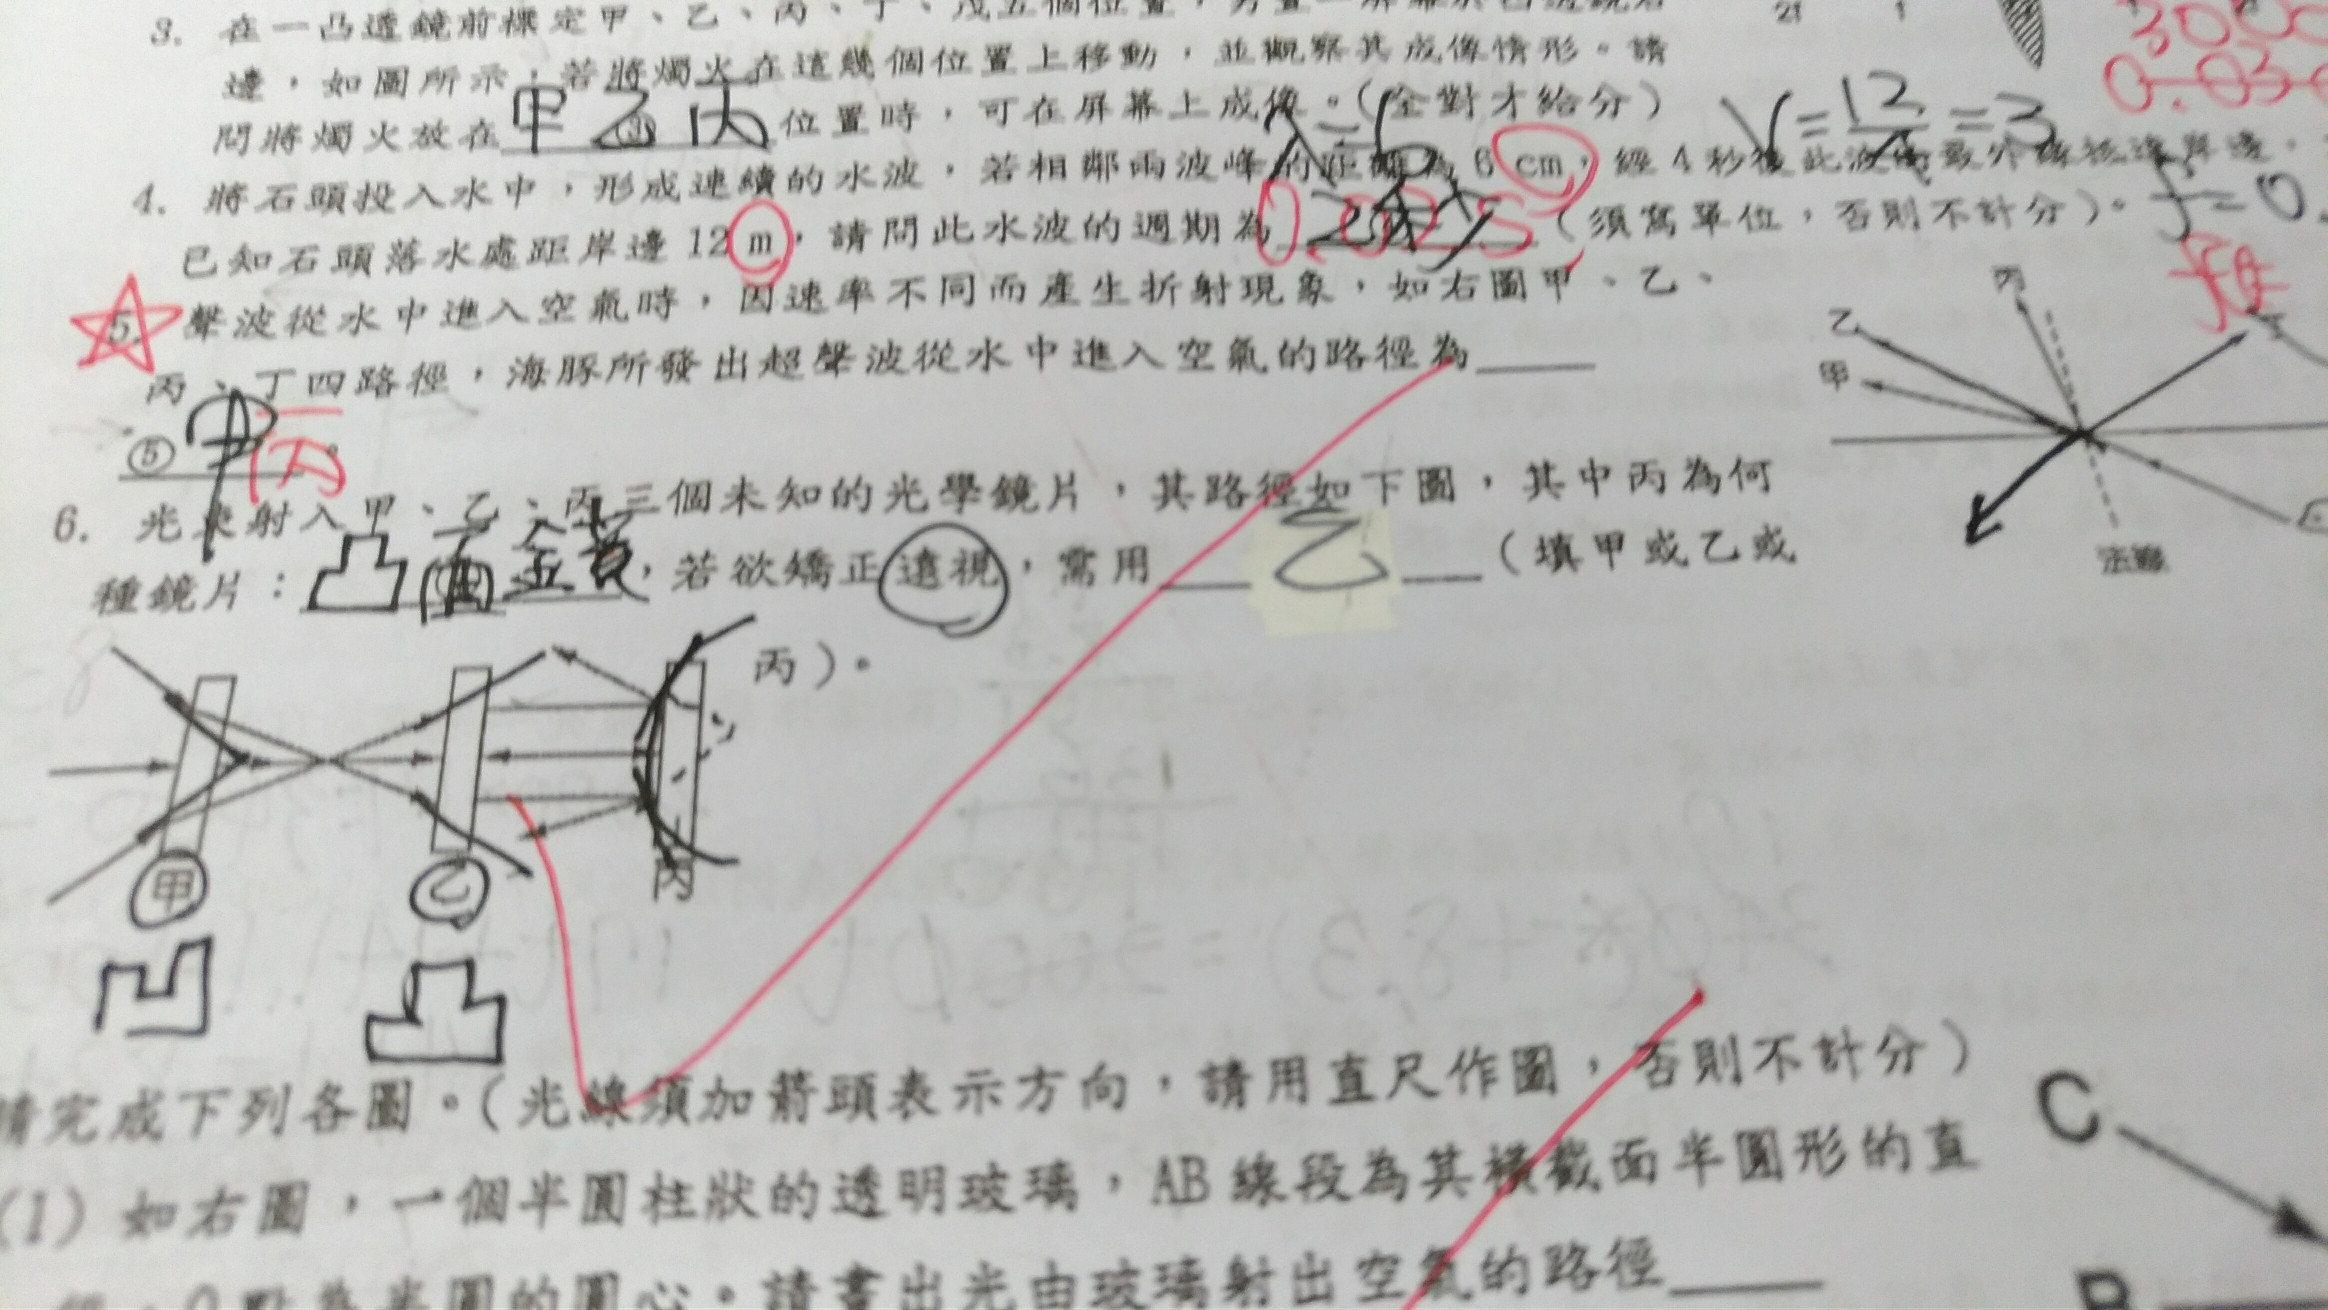 3. 在一凸透鏡前標定甲、乙、丙、丁、戊五個位置，另置一屏幕於凸透鏡右
邊，如圖所示，若將燭火在這幾個位置上移動，並觀察其成像情形。請
問將燭火放在 甲 乙 丙 位置時，可在屏幕上成像。（全對才給分）
λ=6
V=12/4=3
4. 將石頭投入水中，形成連續的水波，若相鄰兩波峰的距離為 6 cm，經 4 秒後此波
已知石頭落水處距岸邊 12 m，請問此水波的週期為 0.02 S （須寫單位，否則不計分）。
f=0.
5. 聲波從水中進入空氣時，因速率不同而產生折射現象，如右圖甲、乙、
丙、丁四路徑，海豚所發出超聲波從水中進入空氣的路徑為
⑤ 甲 丙 。
丙
乙
甲
法線
6. 光束射入甲、乙、丙三個未知的光學鏡片，其路徑如下圖，其中丙為何
種鏡片：凸面鏡，若欲矯正遠視，需用 乙 （填甲或乙或
丙）。
甲 乙 丙
凹 凸
請完成下列各圖。（光線須加箭頭表示方向，請用直尺作圖，否則不計分）
(1) 如右圖，一個半圓柱狀的透明玻璃，AB 線段為其橫截面半圓形的直
O點為半圓的圓心。請畫出光由玻璃射出空氣的路徑
C
B